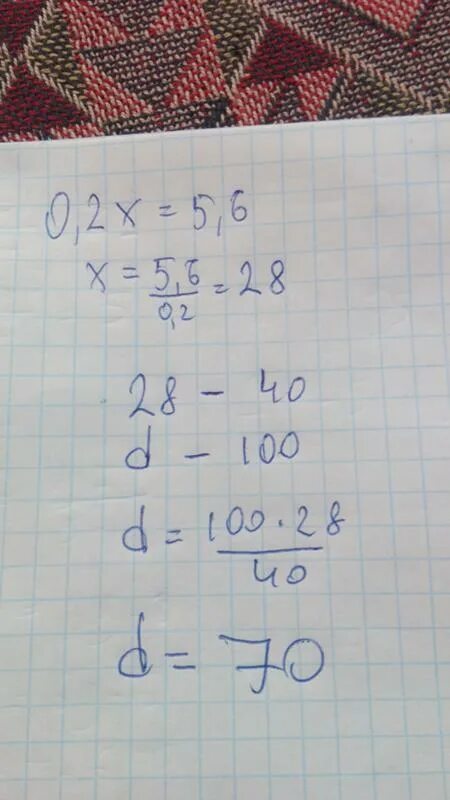 0,2x = 5,6
x = 5,6/0,2 = 28
28 - 40
d - 100
d = 100·28/40
d = 70